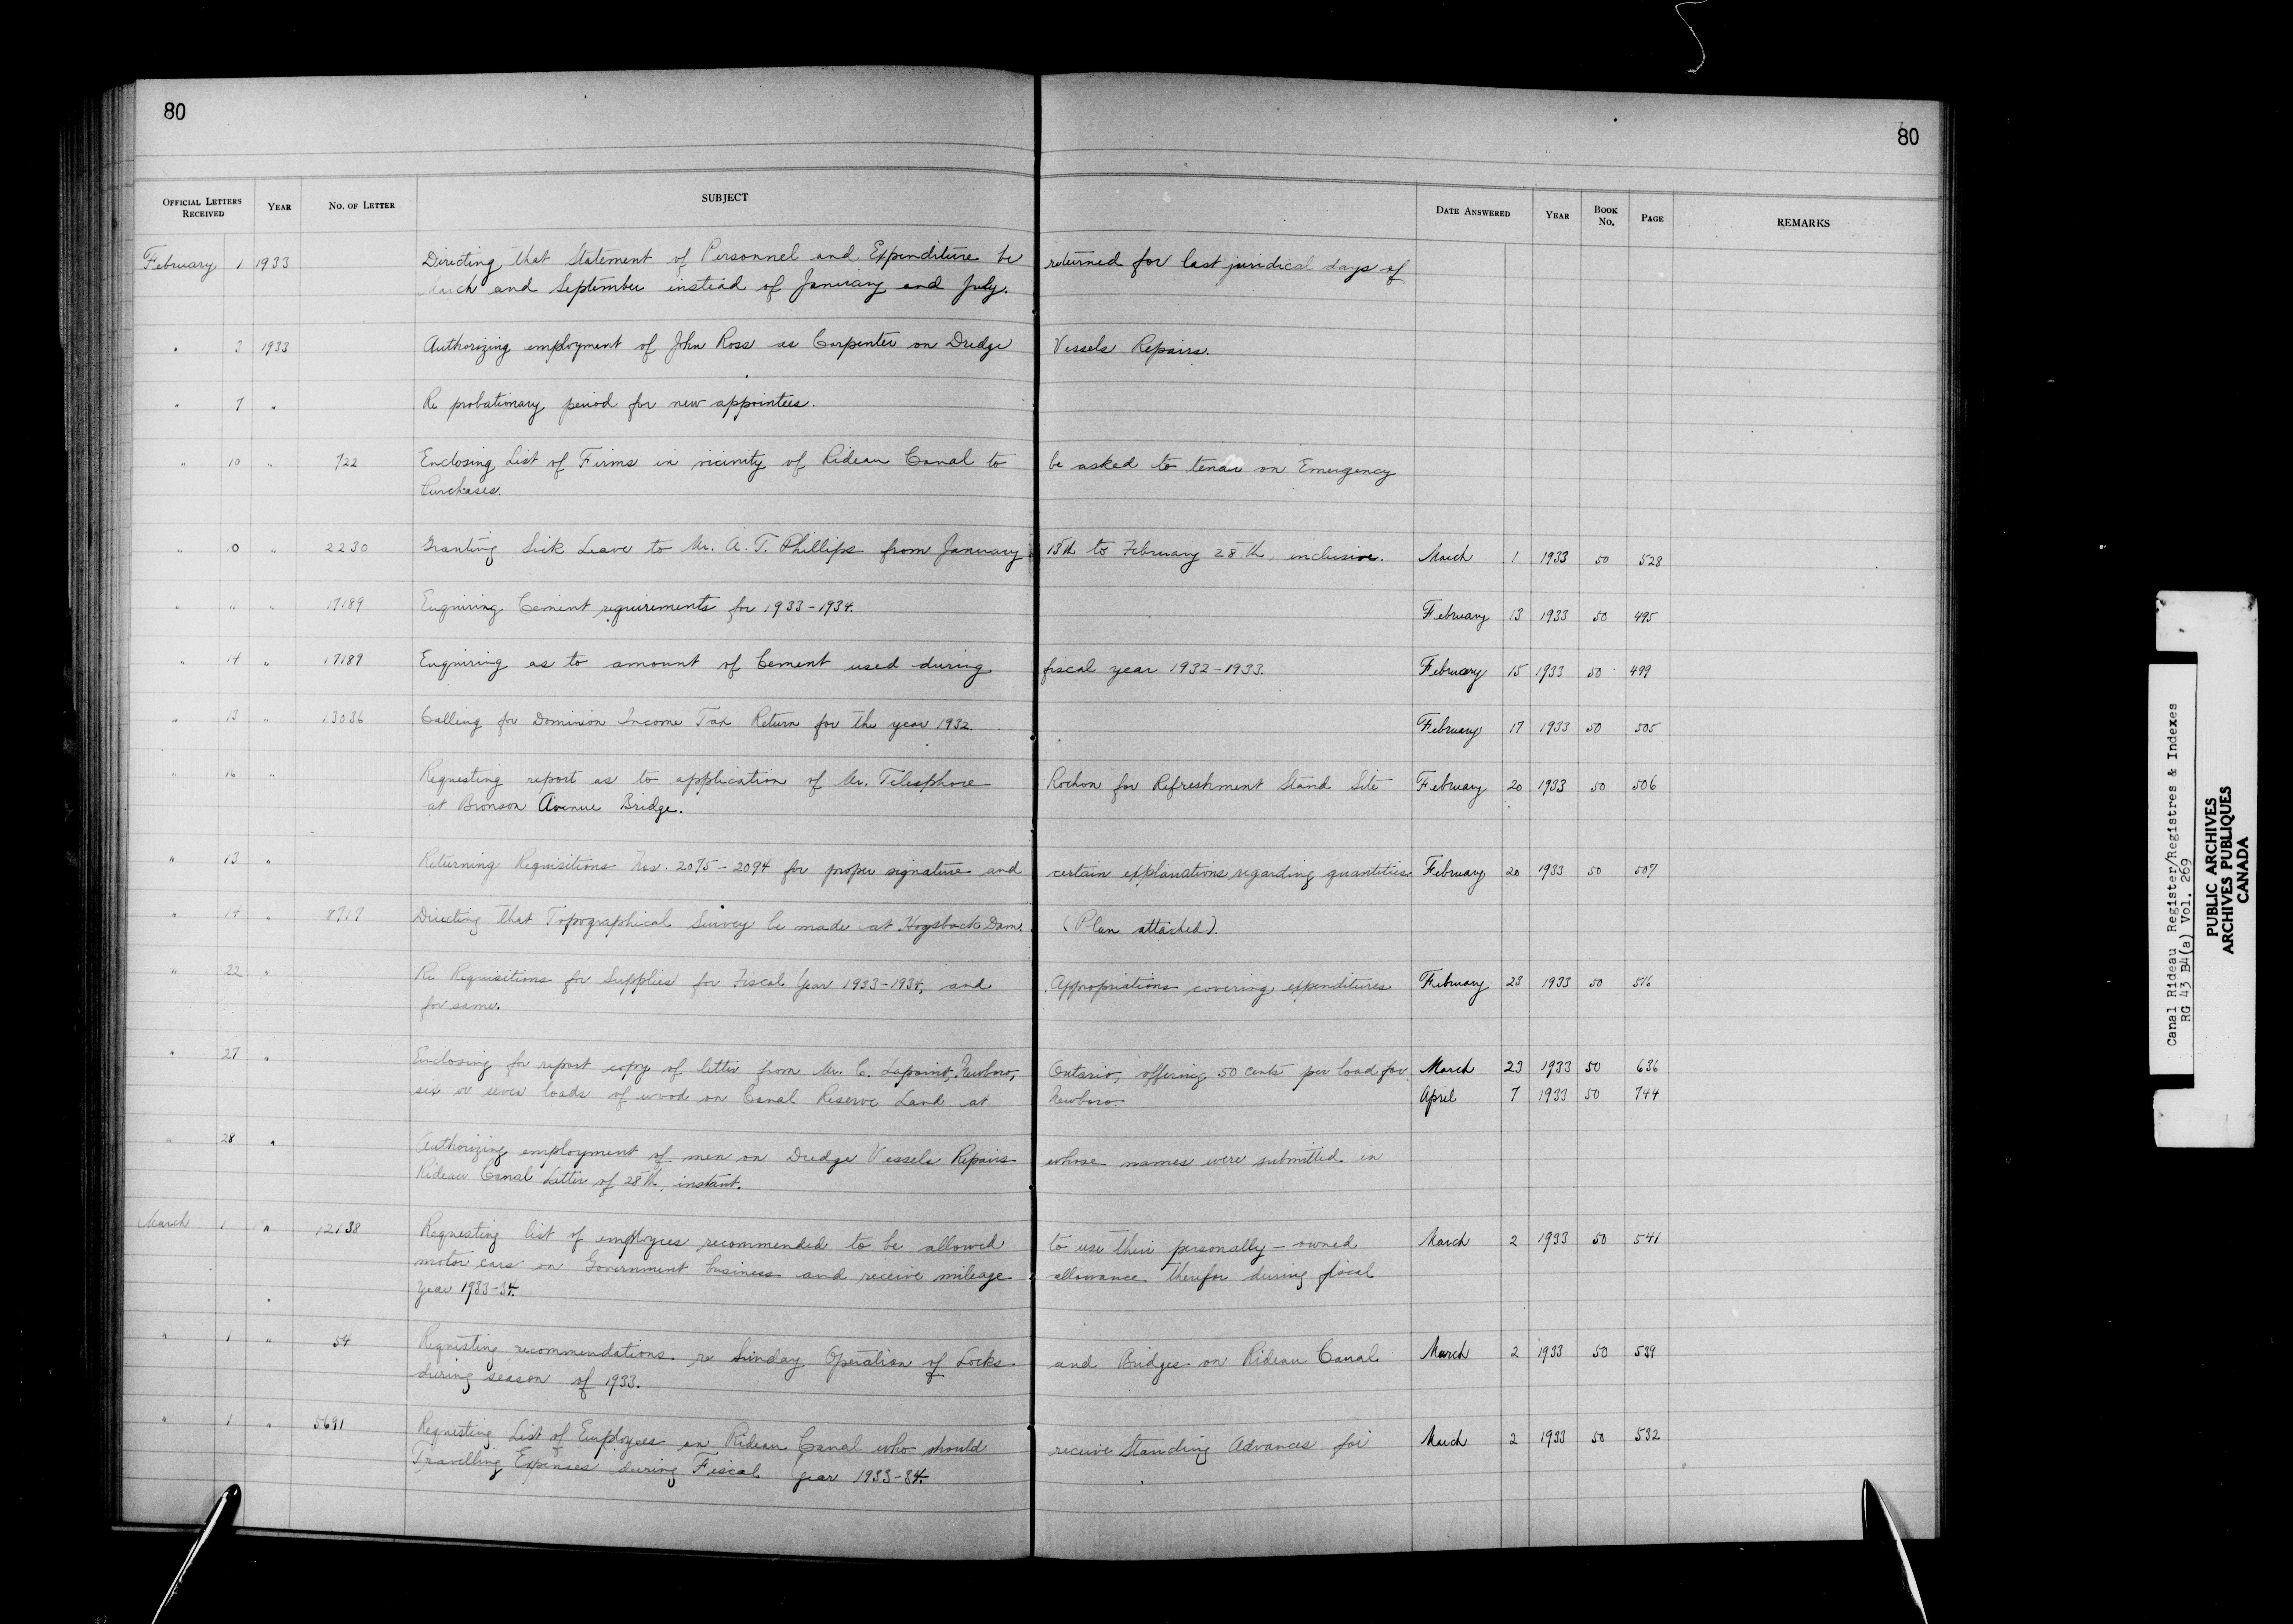 80
80
OFFICIAL LETTERS RECEIVED YEAR NO. OF LETTER SUBJECT DATE ANSWERED YEAR BOOK NO. PAGE REMARKS
February 1 1933 Directing that Statement of Personnel and Expenditure be returned for last juridical days of
March and September instead of January and July.
" 3 1933 Authorizing employment of John Ross as Carpenter on Dredge Vessels Repairs.
" 7 " Re probationary period for new appointees.
" 10 " 722 Enclosing List of Firms in vicinity of Rideau Canal to be asked to on Emergency
Purchases.
" 10 " 2230 Granting Sick Leave to Mr. A. T. Phillips from January 15th to February 28th, inclusive. March 1 1933 50 528
" 11 " 17189 Enquiring Cement requirements for 1933-1934. February 13 1933 50 495
" 14 " 17189 Enquiring as to amount of Cement used during fiscal year 1932-1933. February 15 1933 50 499
" 13 " 13036 Calling for Dominion Income Tax Return for the year 1932. February 17 1933 50 505
" 16 " Requesting report as to application of Mr. Telesphore Rochon for Refreshment Stand Site February 20 1933 50 506
at Bronson Avenue Bridge.
" 13 " Returning Requisitions Nos. 2075-2094 for proper signature and certain explanations regarding quantities. February 20 1933 50 507
" 14 " 8717 Directing that Topographical Survey be made at Hogsback Dam. (Plan attached).
" 22 " Re Requisitions for Supplies for Fiscal Year 1933-1934, and Appropriations covering expenditures February 23 1933 50 516
for same.
" 27 " Enclosing for report copy of letter from Mr. C. Lapoint, Newboro, Ontario, offering 50 cents per load for March 23 1933 50 636
six or seven loads of wood on Canal Reserve Land at Newboro. April 7 1933 50 744
" 28 " Authorizing employment of men on Dredge Vessels Repairs whose names were submitted in
Rideau Canal Letter of 28th, instant.
March 1 " 12138 Requesting list of employees recommended to be allowed to use their personally-owned March 2 1933 50 541
motor cars on Government business and receive mileage allowance therefor during fiscal
year 1933-34.
" 1 " 54 Requesting recommendations re Sunday Operation of Locks and Bridges on Rideau Canal March 2 1933 50 539
during season of 1933.
" 1 " 5691 Requesting List of Employees on Rideau Canal who should receive Standing Advances for March 2 1933 50 532
Travelling Expenses during Fiscal Year 1933-34.
Canal Rideau Register/Registres & Indexes
RG 43 B4(a) Vol. 269
PUBLIC ARCHIVES
ARCHIVES PUBLIQUES
CANADA